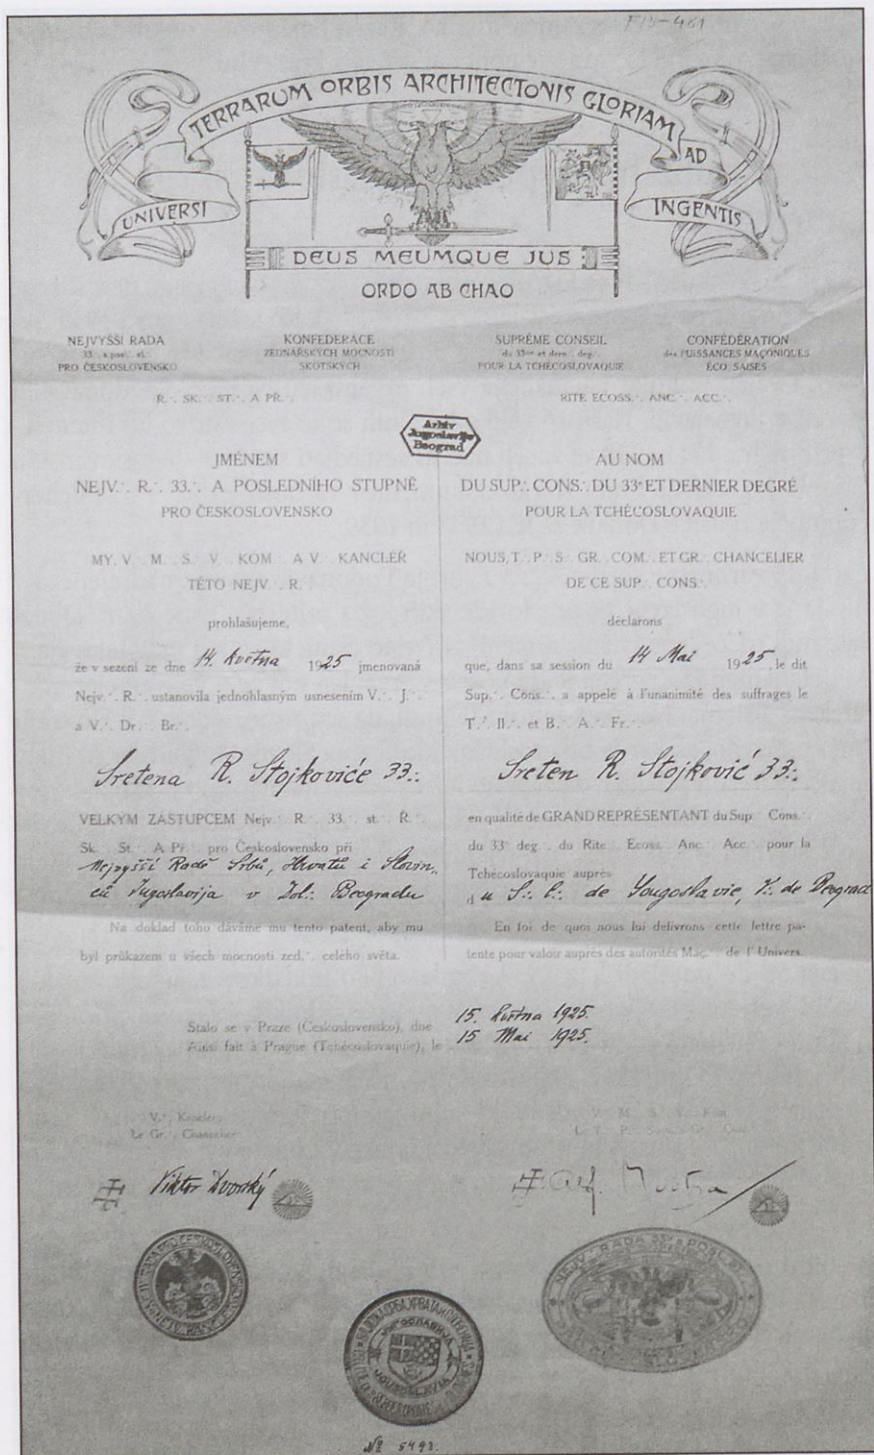 F13-461
TERRARUM ORBIS ARCHITECTONIS GLORIAM
AD
UNIVERSI
INGENTIS
DEUS MEUMQUE JUS
ORDO AB CHAO
NEJVYŠŠÍ RADA
33. a posl. st.
PRO ČESKOSLOVENSKO
KONFEDERACE
ZEDNÁŘSKÝCH MOCNOSTÍ
SKOTSKÝCH
SUPRÊME CONSEIL
du 33me et dern. deg.
POUR LA TCHÉCOSLOVAQUIE
CONFÉDÉRATION
des PUISSANCES MAÇONIQUES
ÉCO SAISES
R∴ SK∴ ST∴ A PŘ∴
RITE ECOSS∴ ANC∴ ACC∴
Arhiv
Jugoslavije
Beograd
JMÉNEM
NEJV∴ R∴ 33∴ A POSLEDNÍHO STUPNĚ
PRO ČESKOSLOVENSKO
MY, V∴ M∴ S∴ V∴ KOM∴ A V∴ KANCLÉŘ
TÉTO NEJV∴ R∴
prohlašujeme,
že v sezení ze dne 14. května 1925 jmenovaná
Nejv∴ R∴ ustanovila jednohlasným usnesením V∴ J∴
a V∴ Dr∴ Br∴
Sretena R. Stojkoviće 33∴
VELKÝM ZÁSTUPCEM Nejv∴ R∴ 33∴ st∴ Ř∴
Sk∴ St∴ A Př∴ pro Československo při
Nejvyšší Radě Srbů, Hrvatů i Slovin-
ců Jugoslavija v Beogradu
Na doklad toho dáváme mu tento patent, aby mu
byl průkazem u všech mocností zed∴ celého světa.
AU NOM
DU SUP∴ CONS∴ DU 33e ET DERNIER DEGRÉ
POUR LA TCHÉCOSLOVAQUIE
NOUS, T∴ P∴ S∴ GR∴ COM∴ ET GR∴ CHANCELIER
DE CE SUP∴ CONS∴
déclarons
que, dans sa session du 14 Mai 1925, le dit
Sup∴ Cons∴ a appelé à l'unanimité des suffrages le
T∴ Ill∴ et B∴ A∴ Fr∴
Sreten R. Stojković 33∴
en qualité de GRAND REPRÉSENTANT du Sup∴ Cons∴
du 33e deg∴ du Rite Ecoss∴ Anc∴ Acc∴ pour la
Tchécoslovaquie auprès
du S∴ C∴ de Yougoslavie, V. de Beograd
En foi de quoi nous lui delivrons cette lettre pa-
tente pour valoir auprès des autorités Maç∴ de l'Univers.
Stalo se v Praze (Československo), dne 15. května 1925.
Ainsi fait à Prague (Tchécoslovaquie), le 15 Mai 1925.
V∴ Kancléř
Le Gr∴ Chancelier
Viktor Dvorský
V∴ M∴ S∴ V∴ Kom∴
NEJV∴ RADA 33∴ A POSL∴ ST∴
ЈУГОСЛАВИЈА
№ 5493.